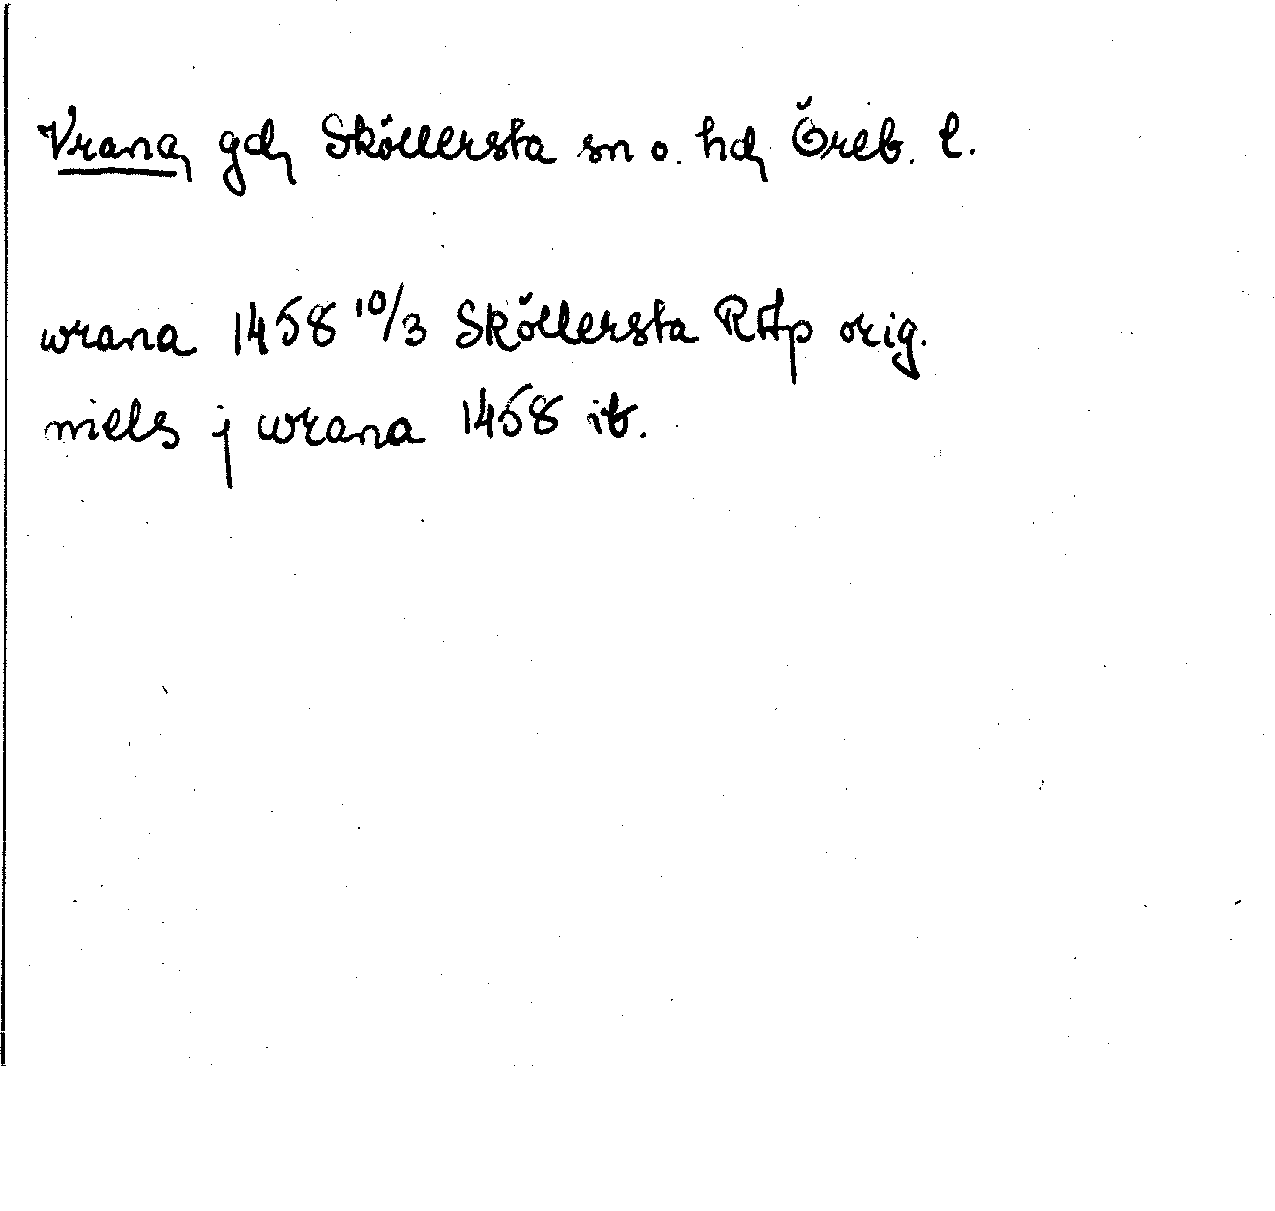 Vrana, gd, Sköllersta sn o. hd, Öreb. l.
wrana 1458 10/3 Sköllersta RAp orig.
niels j wrana 1458 ib.